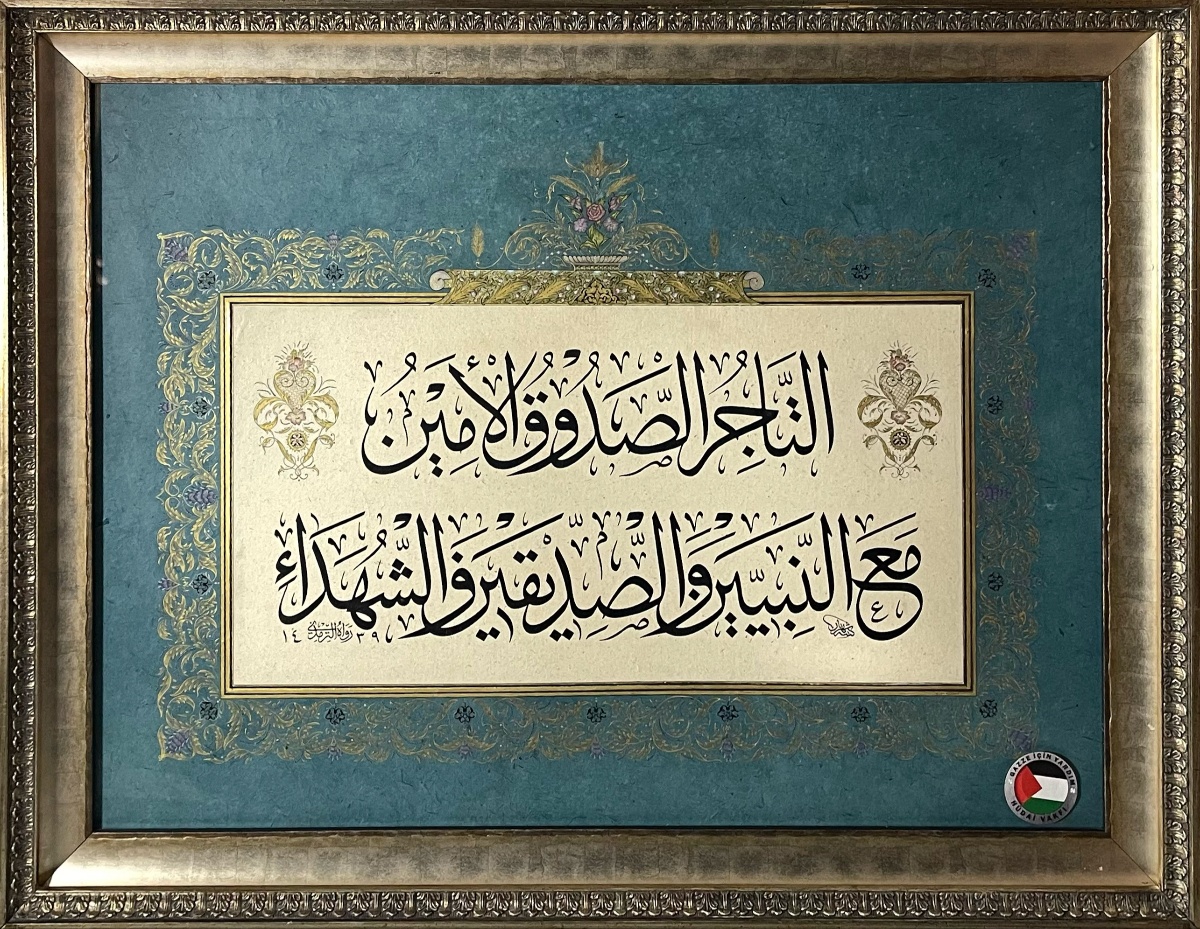 التَّاجِرُ الصَّدُوقُ الْأَمِينُ
مَعَ النَّبِيِّينَ وَالصِّدِّيقِينَ وَالشُّهَدَاءِ
رواه الترمذي
١٤٣٩
GAZZE İÇİN YARDIM
HÜDAİ VAKFI